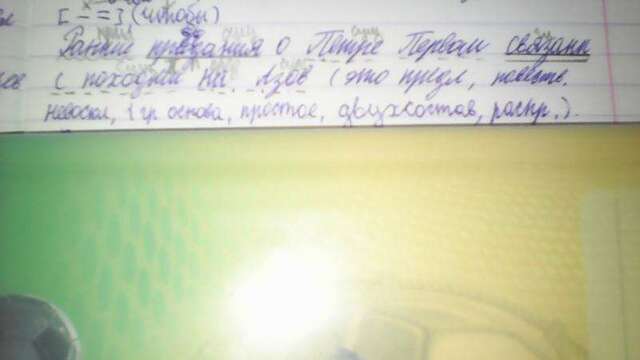 [ – = ] (чтобы)
Ранние предания о Петре Первом связаны
с походом на Азов (это предл, повеств.
невоскл, 1 гр. основа, простое, двухсостав, распр.).